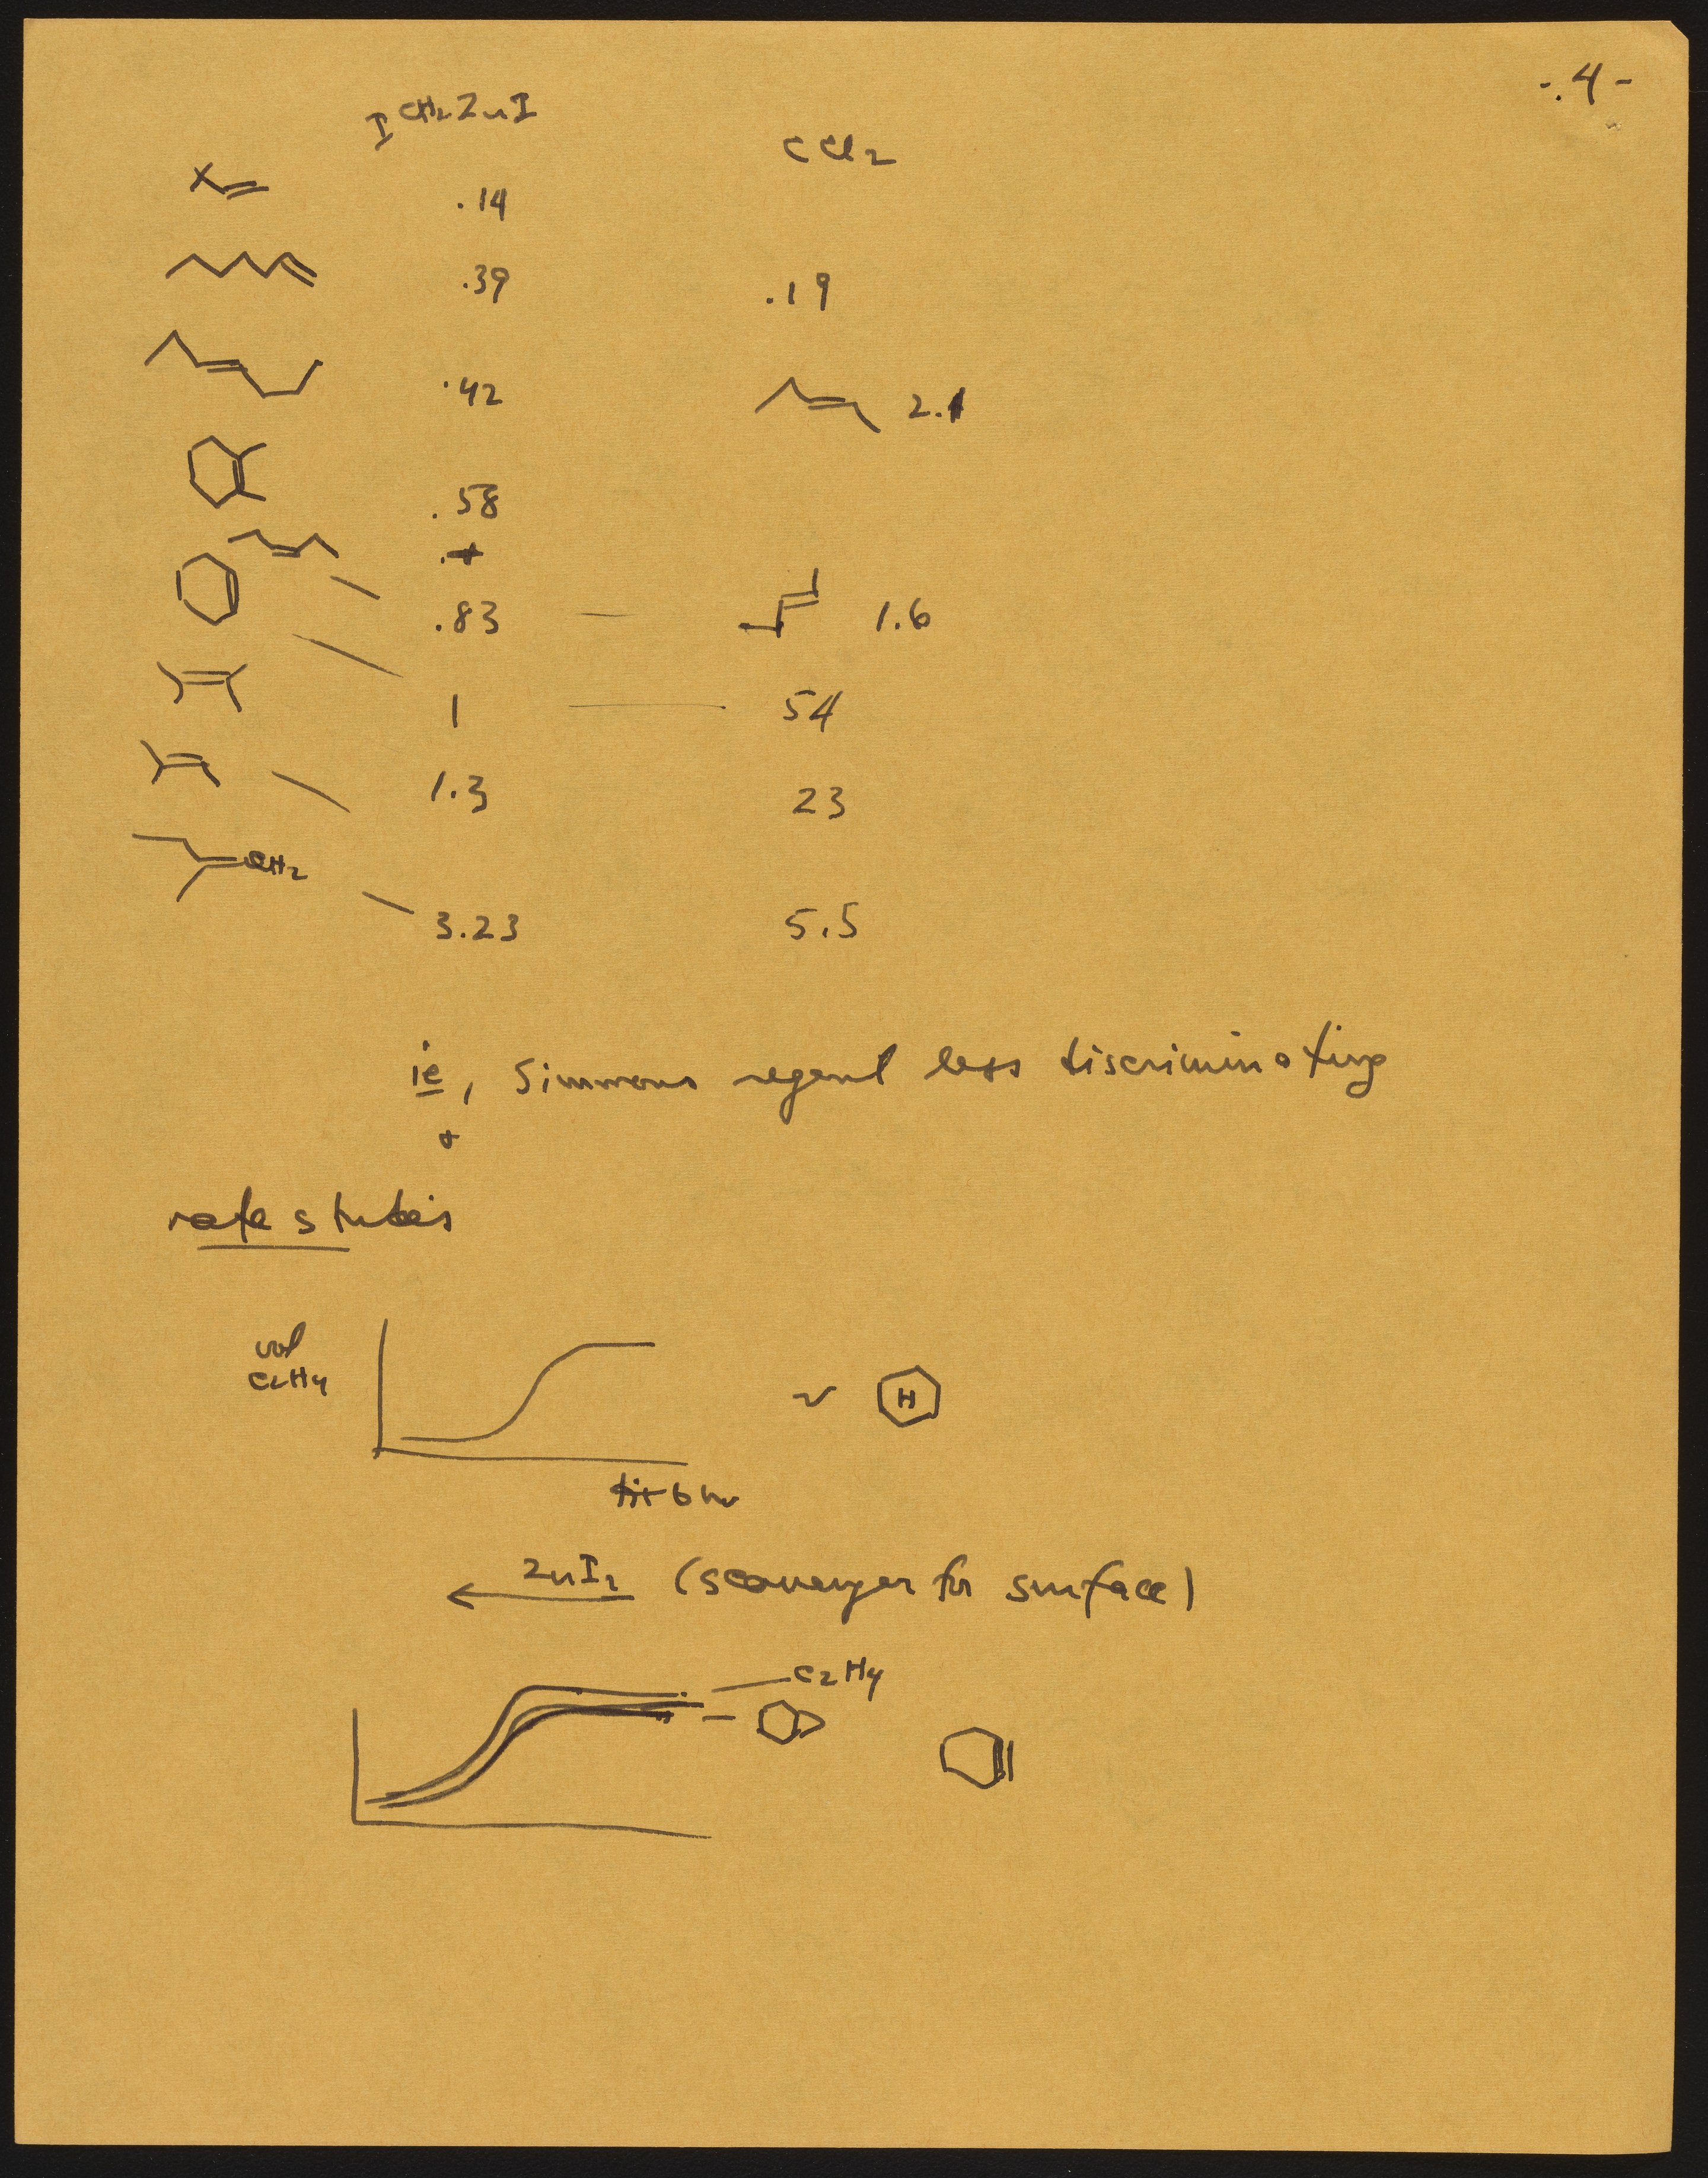 -.4-
ICH2ZnI
CCl2
.14
.39 .19
.42 2.1
.58
.83 1.6
1 54
1.3 23
CH2
3.23 5.5
ie, Simmons regent less discriminating
+
rate studies
vol
C2H4
H
6 hr
ZnI2 (scavenger for surface)
C2H4